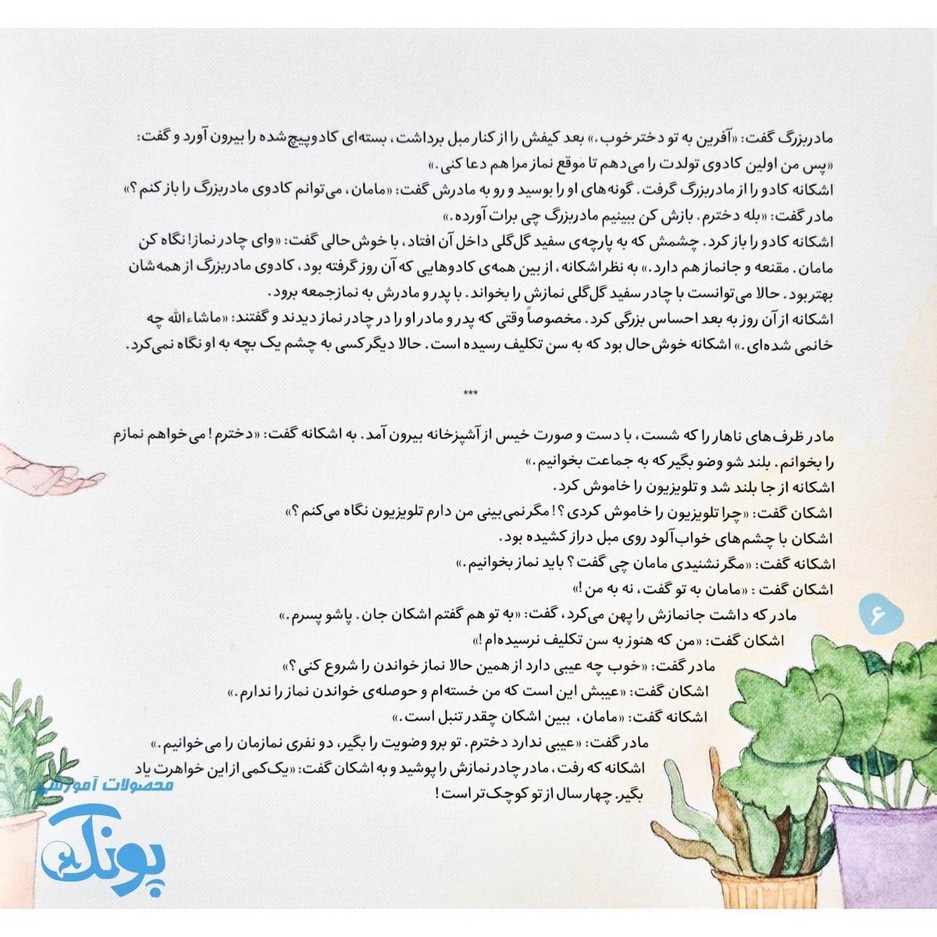 مادربزرگ گفت: «آفرین به تو دختر خوب.» بعد کیفش را از کنار مبل برداشت، بسته‌ای کادوپیچ‌شده را بیرون آورد و گفت:
«پس من اولین کادوی تولدت را می‌دهم تا موقع نماز مرا هم دعا کنی.»
اشکانه کادو را از مادربزرگ گرفت. گونه‌های او را بوسید و رو به مادرش گفت: «مامان، می‌توانم کادوی مادربزرگ را باز کنم؟»
مادر گفت: «بله دخترم. بازش کن ببینیم مادربزرگ چی برات آورده.»
اشکانه کادو را باز کرد. چشمش که به پارچه‌ی سفید گل‌گلی داخل آن افتاد، با خوش‌حالی گفت: «وای چادر نماز! نگاه کن
مامان. مقنعه و جانماز هم دارد.» به نظر اشکانه، از بین همه‌ی کادوهایی که آن روز گرفته بود، کادوی مادربزرگ از همه‌شان
بهتر بود. حالا می‌توانست با چادر سفید گل‌گلی نمازش را بخواند. با پدر و مادرش به نماز جمعه برود.
اشکانه از آن روز به بعد احساس بزرگی کرد. مخصوصاً وقتی که پدر و مادر او را در چادر نماز دیدند و گفتند: «ماشاءالله چه
خانمی شده‌ای.» اشکانه خوش‌حال بود که به سن تکلیف رسیده است. حالا دیگر کسی به چشم یک بچه به او نگاه نمی‌کرد.
***
مادر ظرف‌های ناهار را که شست، با دست و صورت خیس از آشپزخانه بیرون آمد. به اشکانه گفت: «دخترم! می‌خواهم نمازم
را بخوانم. بلند شو وضو بگیر که به جماعت بخوانیم.»
اشکانه از جا بلند شد و تلویزیون را خاموش کرد.
اشکان گفت: «چرا تلویزیون را خاموش کردی؟! مگر نمی‌بینی من دارم تلویزیون نگاه می‌کنم؟»
اشکان با چشم‌های خواب‌آلود روی مبل دراز کشیده بود.
اشکانه گفت: «مگر نشنیدی مامان چی گفت؟ باید نماز بخوانیم.»
اشکان گفت : «مامان به تو گفت، نه به من!»
مادر که داشت جانمازش را پهن می‌کرد، گفت: «به تو هم گفتم اشکان جان. پاشو پسرم.»
اشکان گفت: «من که هنوز به سن تکلیف نرسیده‌ام!»
مادر گفت: «خوب چه عیبی دارد از همین حالا نماز خواندن را شروع کنی؟»
اشکان گفت: «عیبش این است که من خسته‌ام و حوصله‌ی خواندن نماز را ندارم.»
اشکانه گفت: «مامان، ببین اشکان چقدر تنبل است.»
مادر گفت: «عیبی ندارد دخترم. تو برو وضویت را بگیر، دو نفری نمازمان را می‌خوانیم.»
اشکانه که رفت، مادر چادر نمازش را پوشید و به اشکان گفت: «یک‌کمی از این خواهرت یاد
بگیر. چهار سال از تو کوچک‌تر است!
۶
محصولات آموزشی
پونک